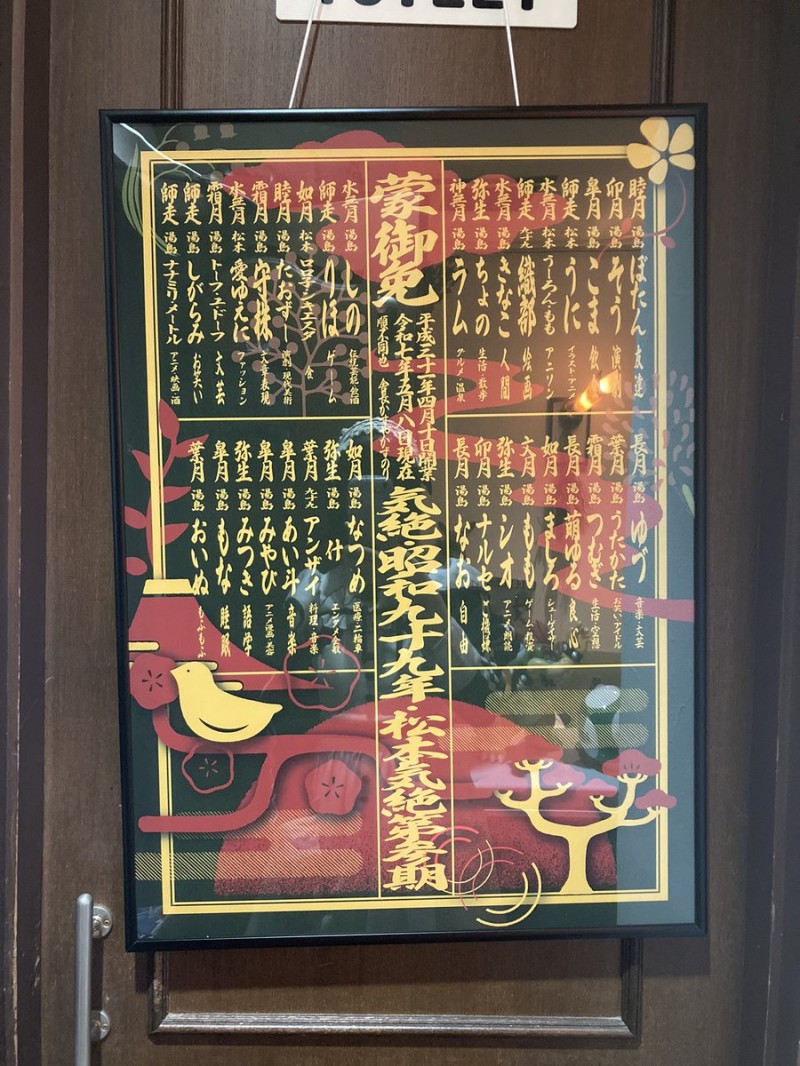 TOILET
睦月 湯島 ぼたん 友達
卯月 湯島 そう 演劇
皐月 湯島 こま 飲
師走 松本 うに イラスト アニメ
水無月 松本 うーろんもも アニソン
師走 織部 絵画
水無月 湯島 きなこ 人間
弥生 湯島 ちょの 生活・散歩
神無月 湯島 ラム グルメ・温泉
長月 湯島 ゆづ 音楽・文芸
葉月 湯島 うたかた お笑い・アイドル
霜月 湯島 つむぎ 生活・空想
長月 湯島 萌ゆる 良心
如月 湯島 ましろ シューゲイザー
文月 湯島 もも ゲーム・投資
弥生 湯島 シオ アニメ・朗読
卯月 湯島 ナルセ
長月 湯島 なお 自由
蒙御免
平成三十一年四月十日開業
令和七年五月八日現在
順不同也 会長ひすおかずのり
気絶・昭和九十九年・松本気絶第参期
水無月 湯島 しの 伝統芸能・飲酒
師走 湯島 りほ ゲーム
如月 松本 ロマチンキエスタ 食
睦月 湯島 たおず 演劇 現代美術
霜月 湯島 守株 文章表現
水無月 松本 愛ゆえに ファッション
霜月 湯島 トーフ・ユドーフ 文芸
師走 湯島 しがらみ お笑い
師走 湯島 ナナミリ・メートル アニメ・映画・酒
如月 湯島 なつめ 医療・二輪車
弥生 湯島 什 エンタメ全般
葉月 アンザイ 料理・音楽
皐月 湯島 あい斗 音楽
皐月 湯島 みやび アニメ・漫画・美容
弥生 湯島 みつき 語学
皐月 湯島 もな 睡眠
葉月 湯島 おいぬ もふもふ